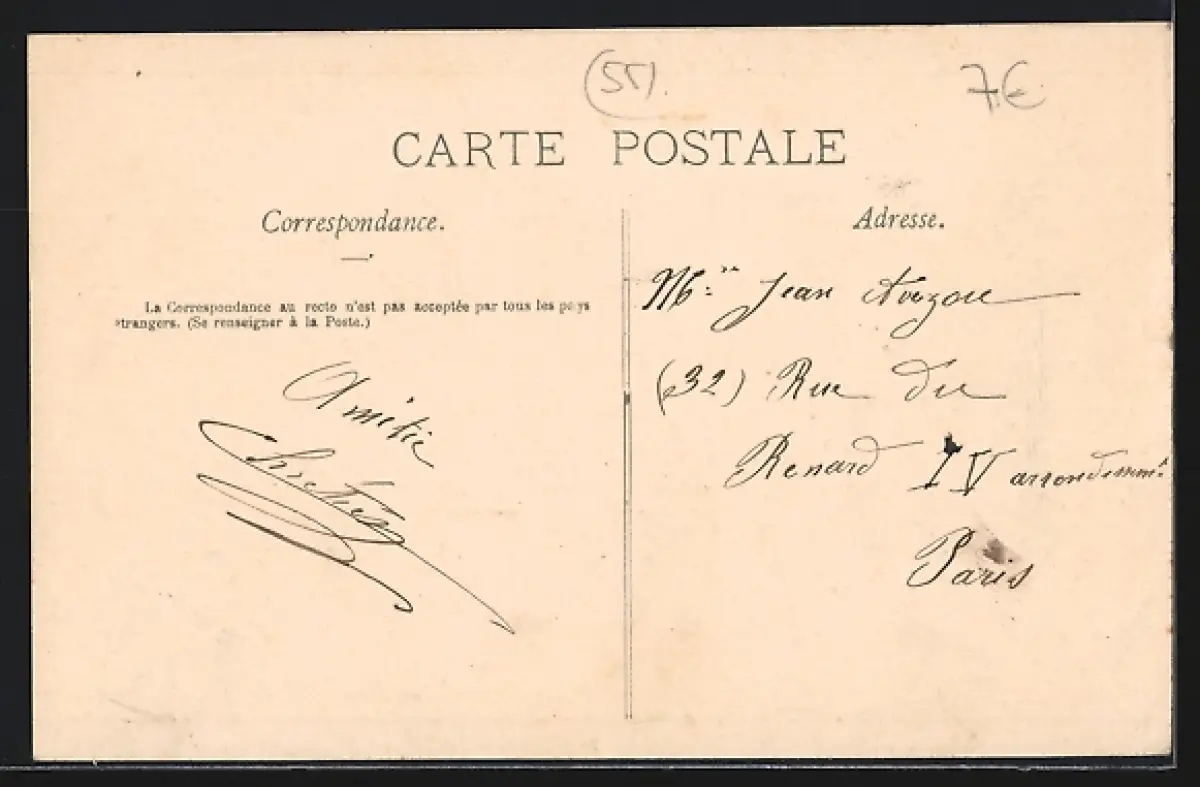 (55)
7€
CARTE POSTALE
Correspondance.
Adresse.
La Correspondance au recto n'est pas acceptée par tous les pays
étrangers. (Se renseigner à la Poste.)
Amitié
Jean
(32) Rue du
Renard IV arrondissmt
Paris